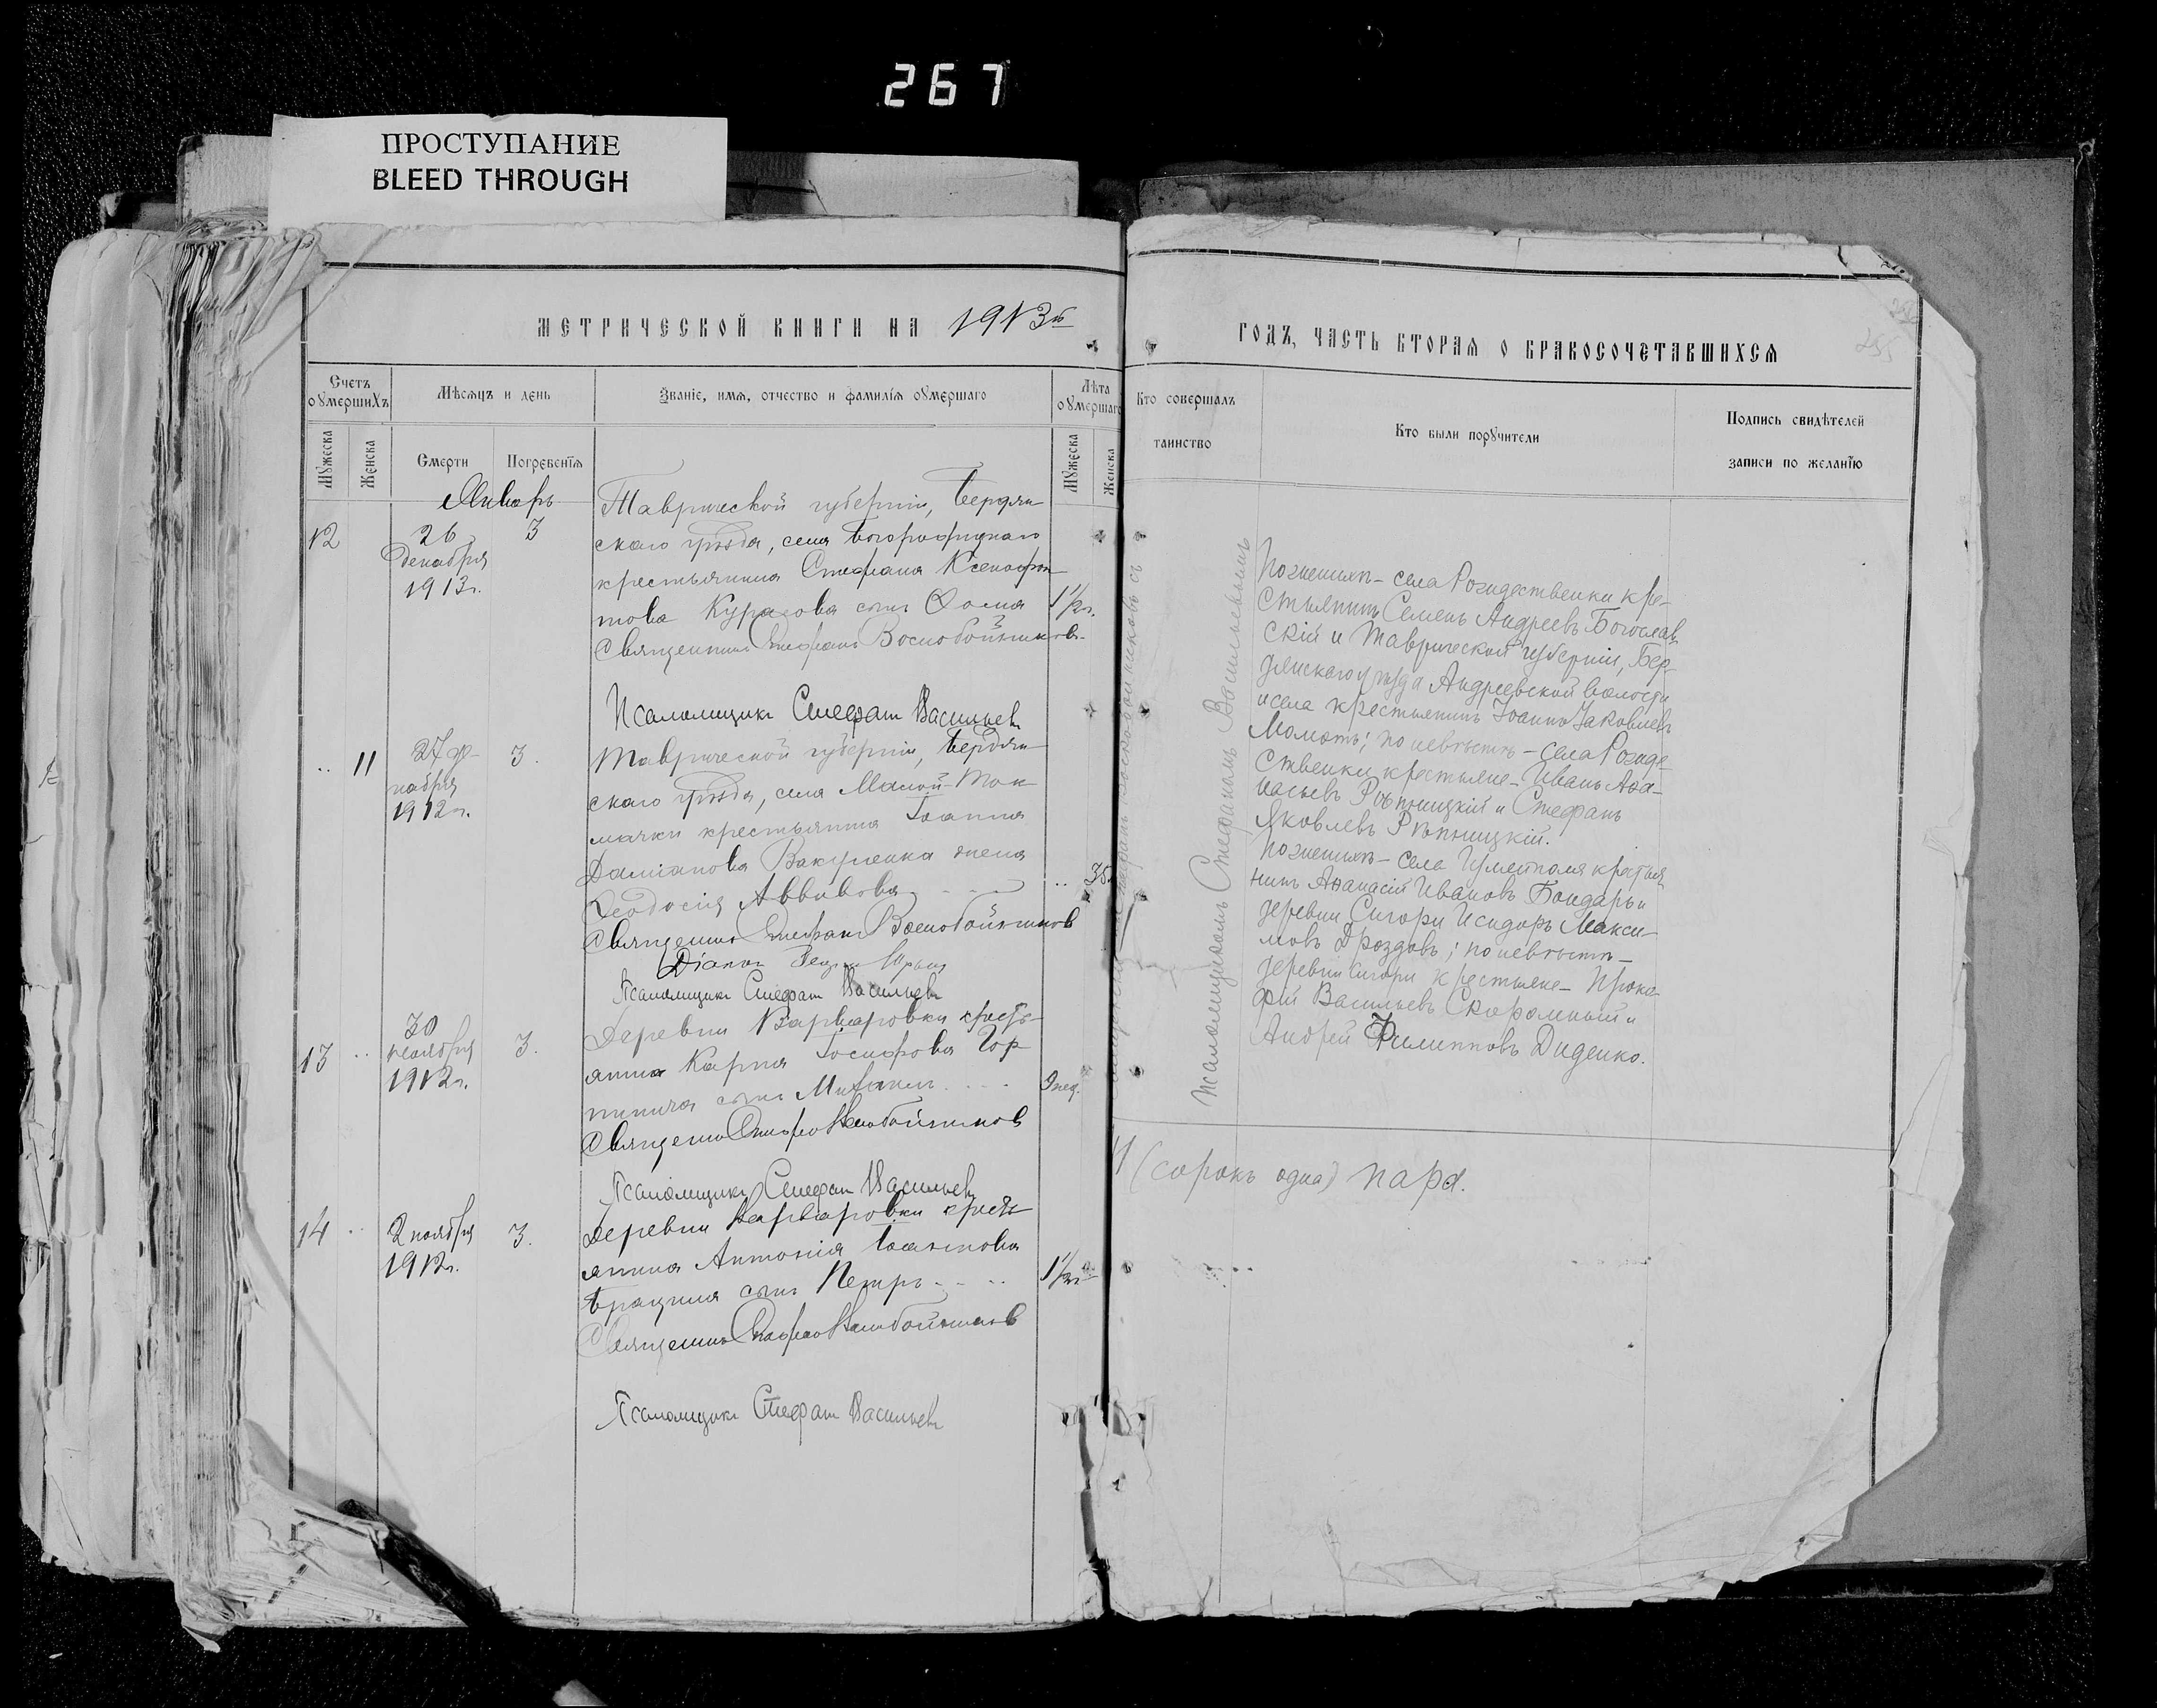 267
ПРОСТУПАНИЕ
BLEED THROUGH
МЕТРИЧЕСКОЙ КНИГИ НА 1913 г.
Счетъ оумершихъ
Мѣсяцъ и день
Званіе, имя, отчество и фамилія оумершаго
Лѣта оумершаго
Мужеска
Женска
Смерти
Погребенія
Мужеска
Женска
Январь
12
26 декабря 1913 г.
3
Таврической губерніи, Бердян
скаго уѣзда, села
крестьянина Стефана Ксенофон
това сынъ Ѳома
1½ г.
Священникъ Стефанъ Воскобойниковъ
Псаломщикъ Стефанъ Васильевъ
11
27
1912 г.
3.
Таврической губерніи, Бердян
скаго уѣзда, села Малой-Ток
мачки крестьянина Іоанна
Даміанова Вакуленка жена
Ѳеодосія
35
Священникъ Стефанъ Воскобойниковъ
Діаконъ
Псаломщикъ Стефанъ Васильевъ
13
30 ноября 1912 г.
3.
Деревни Варваровки кресть
янина Карпа Іосифова Гор
пинича сынъ Михаилъ
9 нед.
Священникъ Стефанъ Воскобойниковъ
Псаломщикъ Стефанъ Васильевъ
14
2 ноября 1912 г.
3.
Деревни Варваровки кресть
янина Антонія
сынъ Петръ
1½ г.
Священникъ Стефанъ Воскобойниковъ
Псаломщикъ Стефанъ Васильевъ
ГОДЪ, ЧАСТЬ ВТОРАЯ О БРАКОСОЧЕТАВШИХСЯ
255
Кто совершалъ
таинство
Кто были поручители
Подпись свидѣтелей
записи по желанію
Псаломщикомъ Стефаномъ Васильевымъ
По женихѣ - села Рождественки кре-
стьянинъ Семенъ Андреевъ Богослав
скій и Таврической губерніи, Бер-
дянскаго уѣзда Андреевской волости
и села крестьянинъ Іоаннъ Яковлевъ
Момотъ; по невѣстѣ - села Рожде-
ственки крестьяне - Иванъ Аѳа-
насьевъ Рѣпницкій и Стефанъ
Яковлевъ Рѣпницкій.
По женихѣ - села крестья
нинъ Аѳанасій Ивановъ Бондарь и
деревни Сигори Исидоръ Макси-
мовъ Дроздовъ; по невѣстѣ -
деревни Сигори крестьяне - Проко-
фій Васильевъ Скоромный и
Андрей Филипповъ Диденко.
(сорокъ одна) пара.